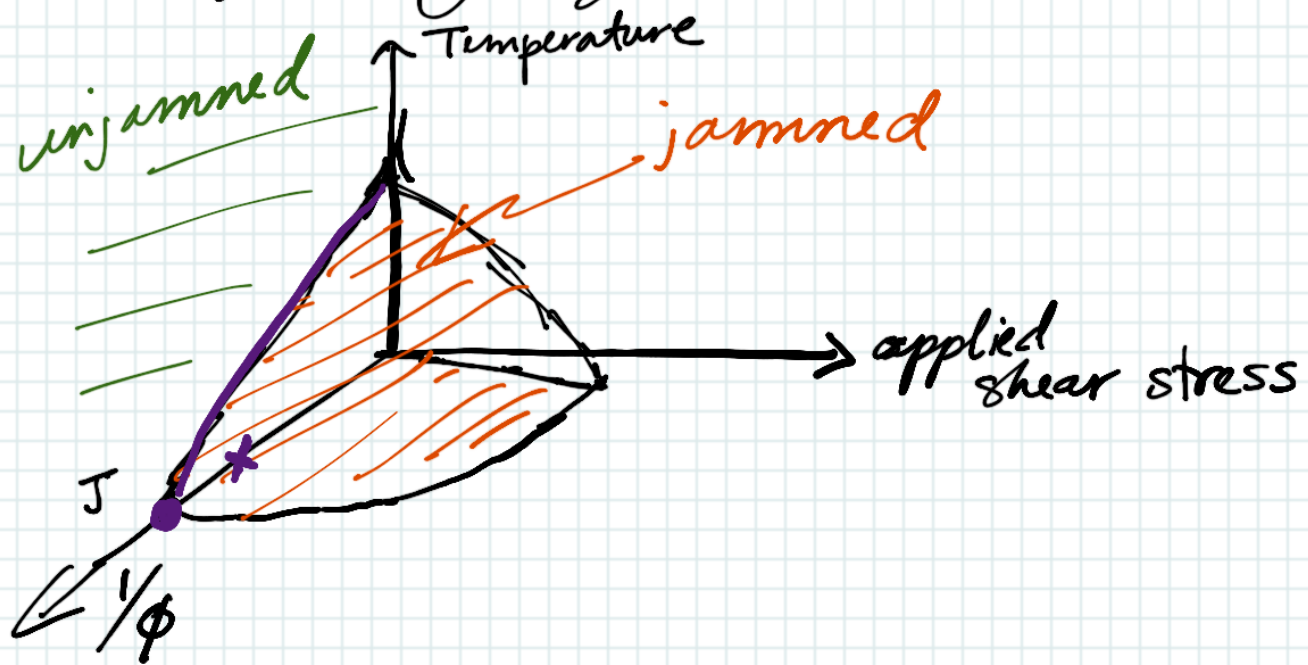 Temperature
unjammed
jammed
applied
shear stress
J
1/ϕ